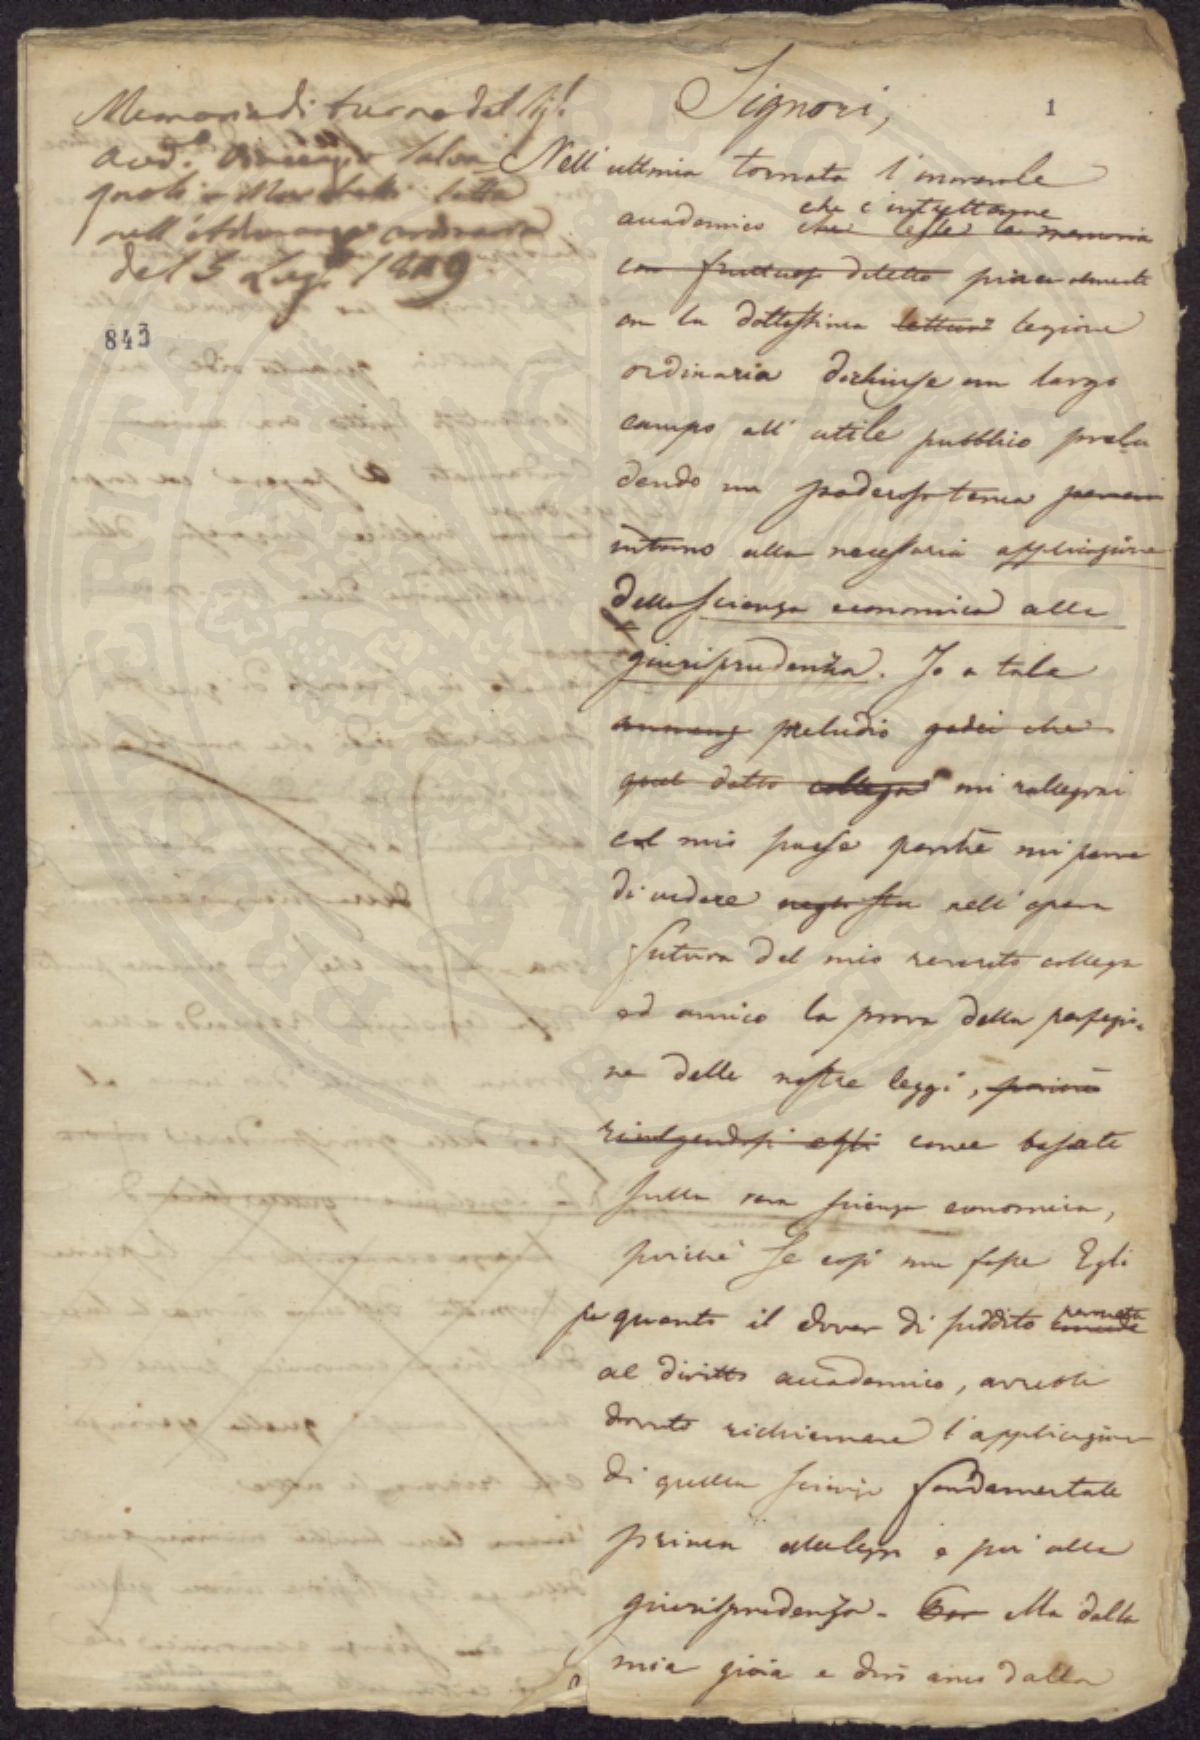 Memoria di turno del Sig.
Acc.º Vincenzo Salva
gnoli Marchetti letta
nell'Adunanza ordinaria
del 5 Lug. 1829.
843
1
Signori,
Nell'ultima tornata l'onorevole
che c'intrattenne
accademico che lesse la memoria
con fruttuoso diletto piacevolmente
con la dottissima lettura lezione
ordinaria dischiuse un largo
campo all'utile pubblico prelu
dendo un poderoso tema
intorno alla necessaria applicazione
della scienza economica alla
giurisprudenza. Io a tale
preludio godei che
quel dotto collega mi rallegrai
col mio paese perchè mi parve
di vedere nell'opera
futura del mio reverito collega
ed amico la prova della perfezio-
ne delle nostre leggi,
rivolgendosi essi come basate
sulla vera scienza economica,
poichè se così non fosse Egli
per quanto il dover di suddito permette
al diritto accademico, avrebbe
dovuto richiamare l'applicazione
di quella scienza fondamentale
prima alle leggi e poi alla
giurisprudenza. Ma dalla
mia gioia e dirò anco dalla